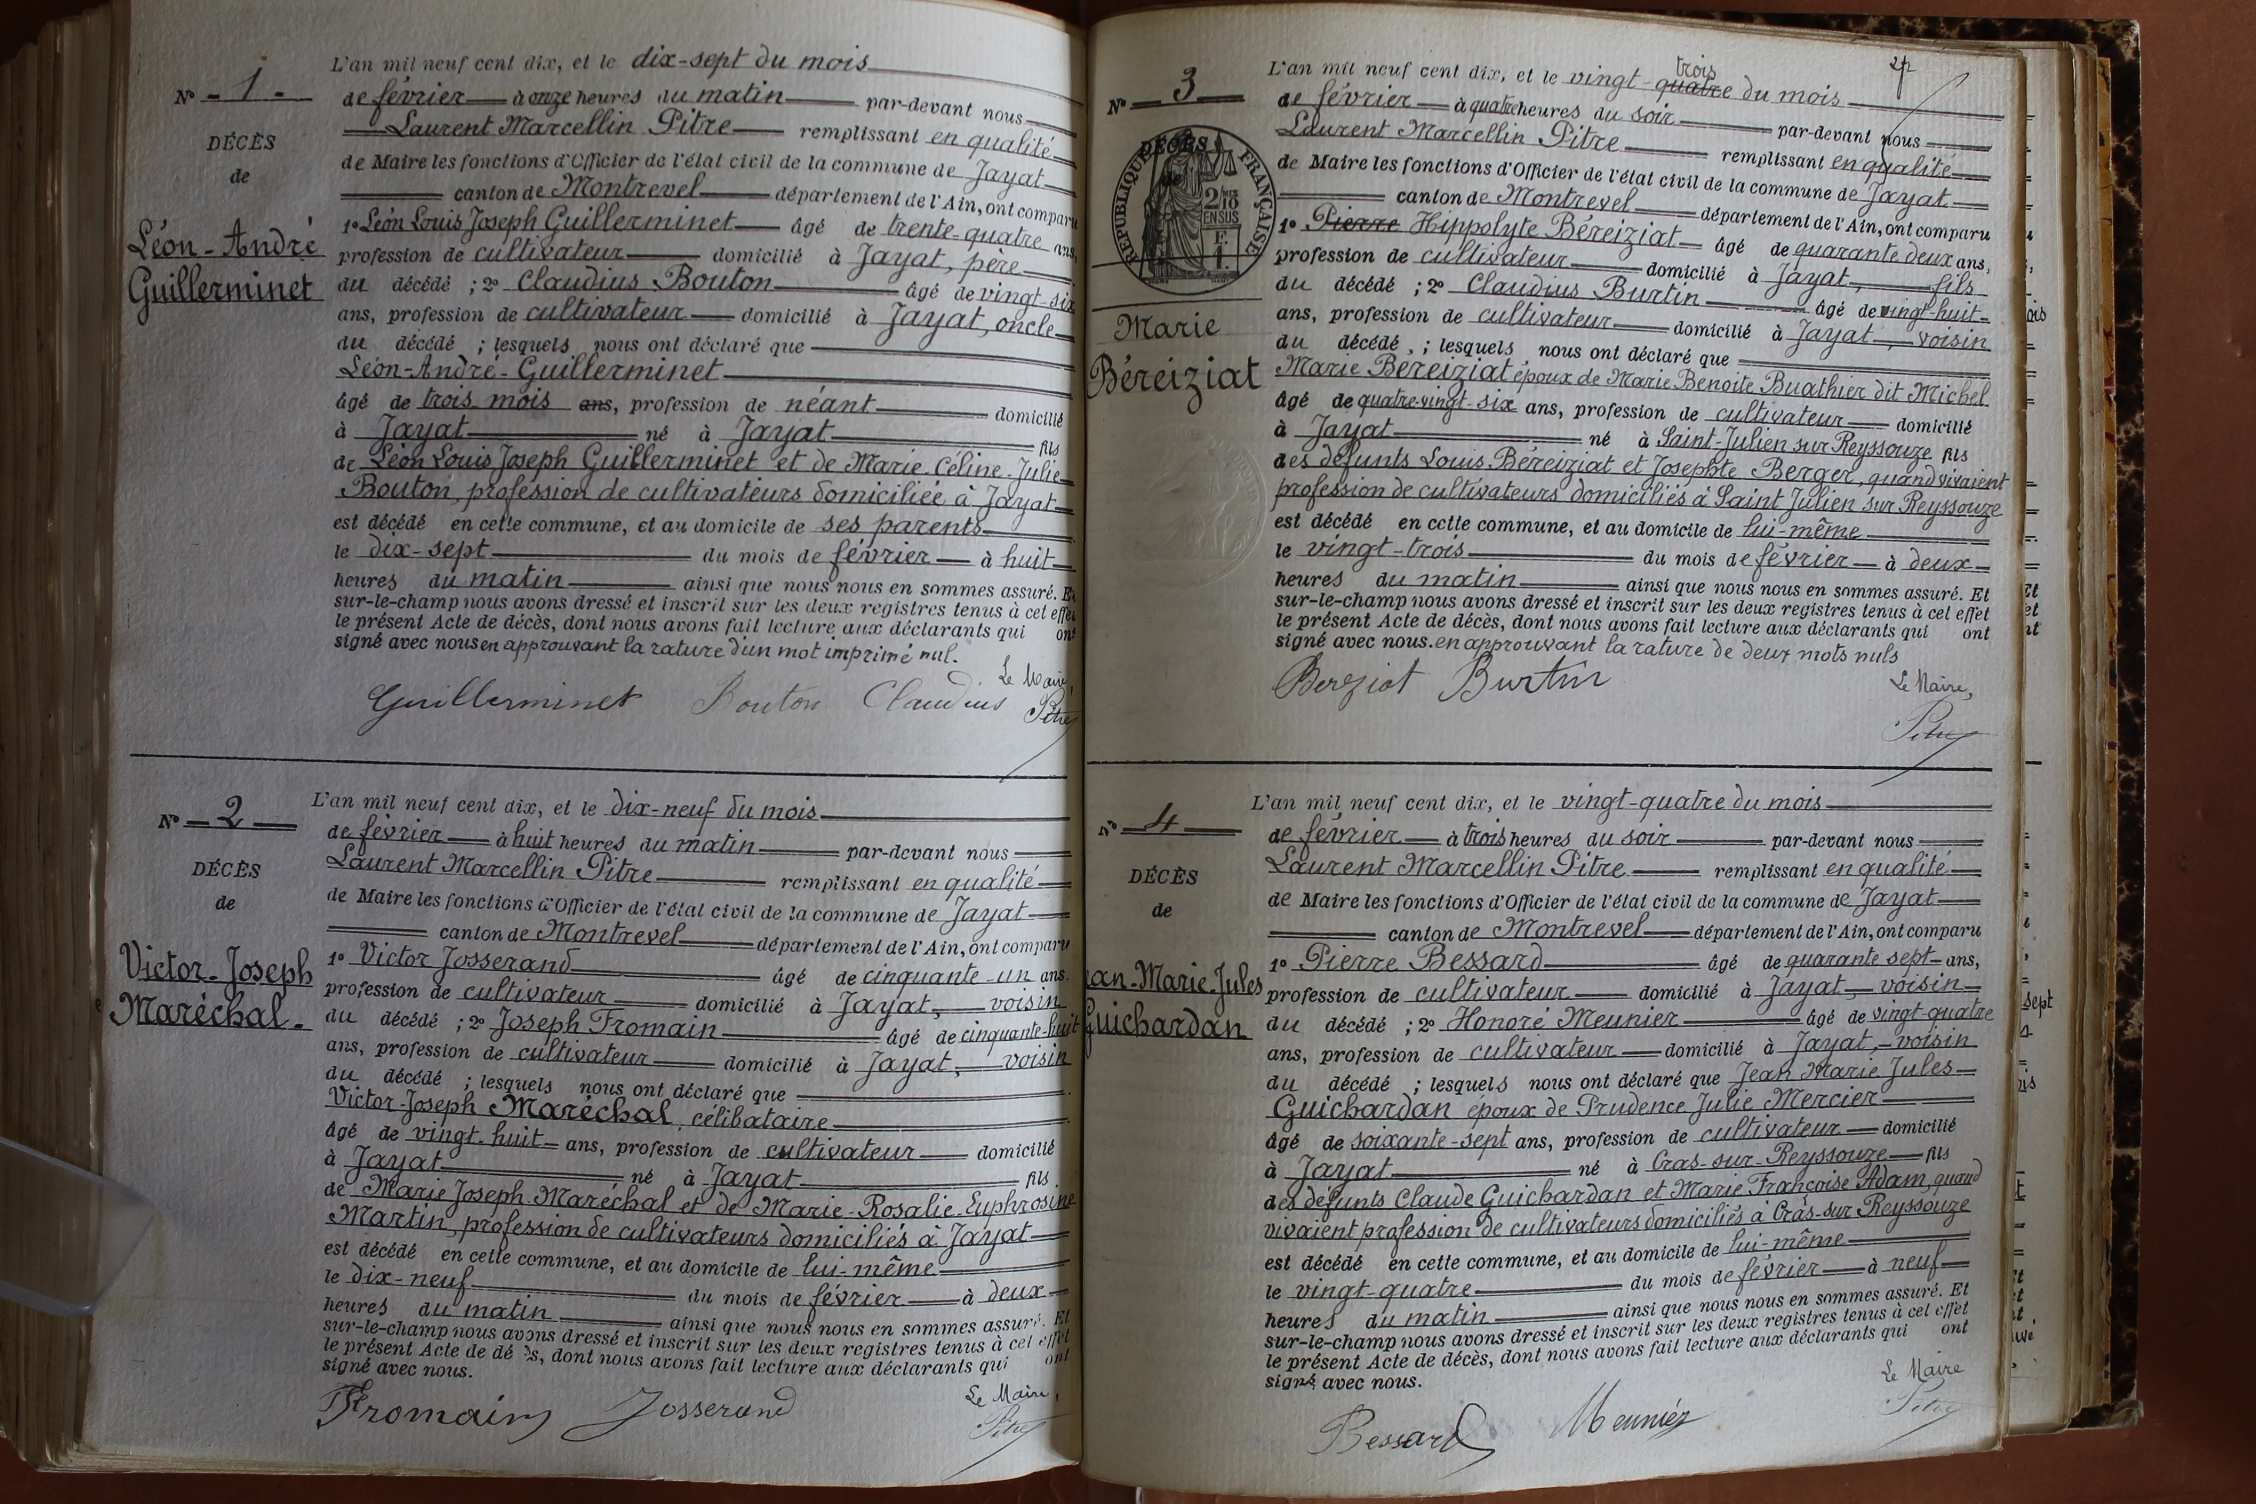 L'an mil neuf cent dix, et le dix-sept du mois
N° 1
de février à onze heures du matin par-devant nous
Laurent Marcellin Pitre remplissant en qualité
DÉCÈS
de Maire les fonctions d'Officier de l'état civil de la commune de Jayat
de
canton de Montrevel département de l'Ain, ont comparu
Léon-André
1° Léon Louis Joseph Guillerminet âgé de trente-quatre ans,
Guillerminet
profession de cultivateur domicilié à Jayat, père
du décédé ; 2° Claudius Bouton âgé de vingt-six
ans, profession de cultivateur domicilié à Jayat, oncle
du décédé ; lesquels nous ont déclaré que
Léon-André-Guillerminet
âgé de trois mois ans, profession de néant domicilié
à Jayat né à Jayat fils
de Léon Louis Joseph Guillerminet et de Marie-Céline-Julie
Bouton, profession de cultivateurs domiciliée à Jayat
est décédé en cette commune, et au domicile de ses parents
le dix-sept du mois de février à huit
heures du matin ainsi que nous nous en sommes assuré. Et
sur-le-champ nous avons dressé et inscrit sur les deux registres tenus à cet effet
le présent Acte de décès, dont nous avons fait lecture aux déclarants qui ont
signé avec nous en approuvant la rature d'un mot imprimé nul.
Le Maire,
Guillerminet Bouton Claudius Pitre
L'an mil neuf cent dix, et le dix-neuf du mois
N° 2
de février à huit heures du matin par-devant nous
Laurent Marcellin Pitre remplissant en qualité
DÉCÈS
de Maire les fonctions d'Officier de l'état civil de la commune de Jayat
de
canton de Montrevel département de l'Ain, ont comparu
Victor-Joseph
1° Victor Josserand âgé de cinquante-un ans.
Maréchal
profession de cultivateur domicilié à Jayat, voisin
du décédé ; 2° Joseph Fromain âgé de cinquante-huit
ans, profession de cultivateur domicilié à Jayat, voisin
du décédé ; lesquels nous ont déclaré que
Victor-Joseph Maréchal, célibataire
âgé de vingt-huit ans, profession de cultivateur domicilié
à Jayat né à Jayat fils
de Marie Joseph Maréchal et de Marie-Rosalie-Euphrosine
Martin, profession de cultivateurs domiciliés à Jayat
est décédé en cette commune, et au domicile de lui-même
le dix-neuf du mois de février à deux
heures du matin ainsi que nous nous en sommes assuré. Et
sur-le-champ nous avons dressé et inscrit sur les deux registres tenus à cet effet
le présent Acte de décès, dont nous avons fait lecture aux déclarants qui ont
signé avec nous.
Le Maire,
Fromain Josserand Pitre
trois
L'an mil neuf cent dix, et le vingt-quatre du mois
N° 3
de février à quatre heures du soir par-devant nous
Laurent Marcellin Pitre remplissant en qualité
DÉCÈS
de Maire les fonctions d'Officier de l'état civil de la commune de Jayat
RÉPUBLIQUE FRANÇAISE
canton de Montrevel département de l'Ain, ont comparu
1° Pierre Hippolyte Béreiziat âgé de quarante deux ans,
profession de cultivateur domicilié à Jayat, fils
du décédé ; 2° Claudius Burtin âgé de vingt-huit
Marie
ans, profession de cultivateur domicilié à Jayat, voisin
Béreiziat
du décédé ; lesquels nous ont déclaré que
Marie Béreiziat époux de Marie Benoite Buathier dit Michel
âgé de quatre-vingt-six ans, profession de cultivateur domicilié
à Jayat né à Saint-Julien sur Reyssouze fils
des défunts Louis Béreiziat et Josephte Berger, quand vivaient
profession de cultivateurs domiciliés à Saint Julien sur Reyssouze
est décédé en cette commune, et au domicile de lui-même
le vingt-trois du mois de février à deux
heures du matin ainsi que nous nous en sommes assuré. Et
sur-le-champ nous avons dressé et inscrit sur les deux registres tenus à cet effet
le présent Acte de décès, dont nous avons fait lecture aux déclarants qui ont
signé avec nous. en approuvant la rature de deux mots nuls
Le Maire,
Bereziat Burtin Pitre
L'an mil neuf cent dix, et le vingt-quatre du mois
N° 4
de février à trois heures du soir par-devant nous
Laurent Marcellin Pitre remplissant en qualité
DÉCÈS
de Maire les fonctions d'Officier de l'état civil de la commune de Jayat
de
canton de Montrevel département de l'Ain, ont comparu
1° Pierre Bessard âgé de quarante sept ans,
ean-Marie-Jules
profession de cultivateur domicilié à Jayat, voisin
Guichardan
du décédé ; 2° Honoré Meunier âgé de vingt-quatre
ans, profession de cultivateur domicilié à Jayat, voisin
du décédé ; lesquels nous ont déclaré que Jean Marie Jules
Guichardan époux de Prudence Julie Mercier
âgé de soixante-sept ans, profession de cultivateur domicilié
à Jayat né à Cras-sur-Reyssouze fils
des défunts Claude Guichardan et Marie Françoise Adam, quand
vivaient profession de cultivateurs domiciliés à Cras-sur Reyssouze
est décédé en cette commune, et au domicile de lui-même
le vingt-quatre du mois de février à neuf
heures du matin ainsi que nous nous en sommes assuré. Et
sur-le-champ nous avons dressé et inscrit sur les deux registres tenus à cet effet
le présent Acte de décès, dont nous avons fait lecture aux déclarants qui ont
signé avec nous.
Le Maire
Bessard Meunier Pitre